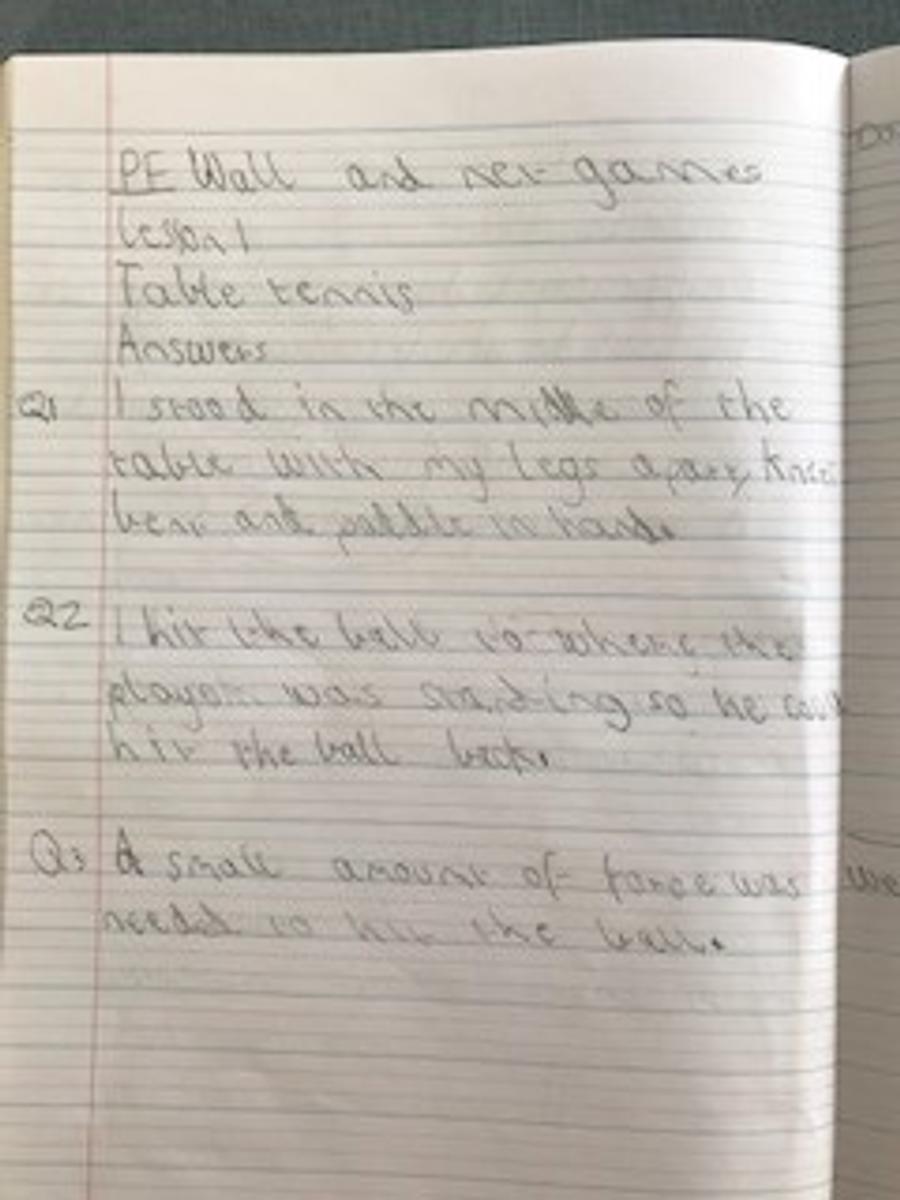 PE Wall and net games
Lesson 1
Table tennis
Answers
Q1 I stood in the middle of the
table with my legs apart, knees
bent and paddle in hand.
Q2 I hit the ball to where the
player was standing so he could
hit the ball back.
Q3 A small amount of force was
needed to hit the ball.
we